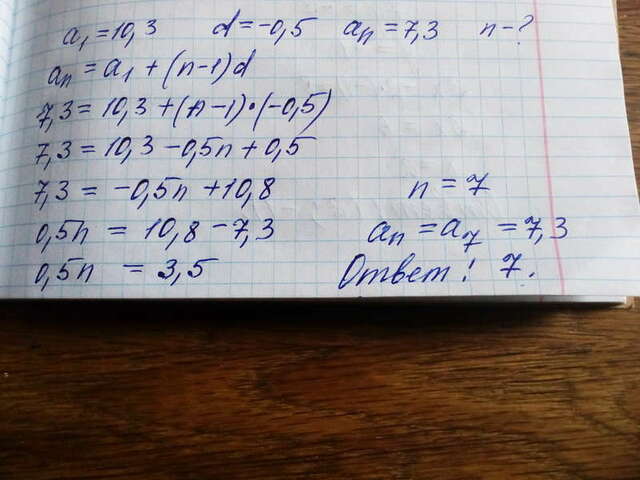 a₁ = 10,3 d = -0,5 aₙ = 7,3 n - ?
aₙ = a₁ + (n-1)d
7,3 = 10,3 + (n-1)·(-0,5)
7,3 = 10,3 - 0,5n + 0,5
7,3 = -0,5n + 10,8
0,5n = 10,8 - 7,3
0,5n = 3,5
n = 7
aₙ = a₇ = 7,3
Ответ: 7.